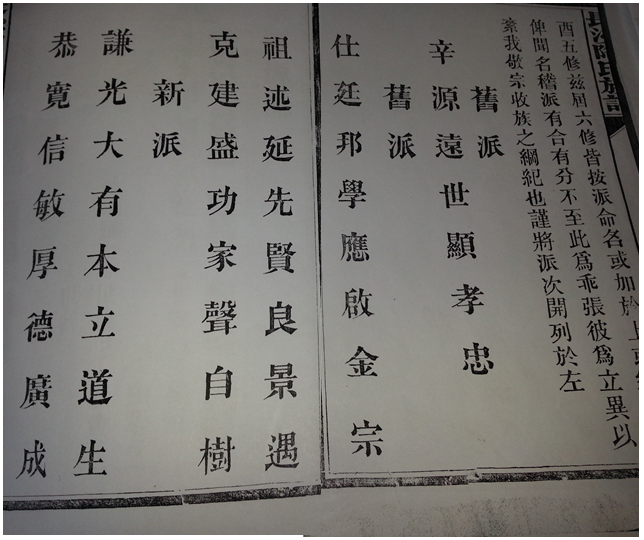 長沙陳氏族譜
酉五修兹屆六修皆按派命名或加於上
俾聞名稽派有合有分不至此爲乖張彼爲立異以
紊我敬宗收族之綱紀也謹將派次開列於左
舊派
辛源遠世顯孝忠
舊派
仕廷邦學應啟金宗
祖述延先賢良景遇
克建盛功家聲自樹
新派
謙光大有本立道生
恭寬信敏厚德廣成